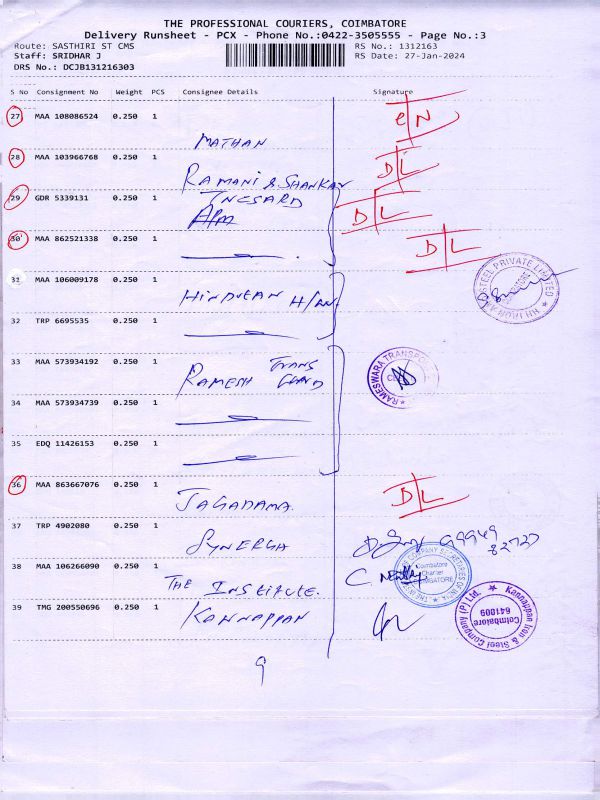 THE PROFESSIONAL COURIERS, COIMBATORE
Delivery Runsheet - PCX - Phone No.:0422-3505555 - Page No.:3
Route: SASTHIRI ST CMS RS No.: 1312163
Staff: SRIDHAR J RS Date: 27-Jan-2024
DRS No.: DCJB131216303
S No Consignment No Weight PCS Consignee Details Signature
27 MAA 108086524 0.250 1
MATHAN
28 MAA 103966768 0.250 1 D L
RAMANI & SHANKAR
29 GDR 5339131 0.250 1 D L
30 MAA 862521338 0.250 1 D L
31 MAA 106009178 0.250 1
STEEL PRIVATE LIMITED
32 TRP 6695535 0.250 1
33 MAA 573934192 0.250 1
RAMESH TRANS
RAMESWARA TRANSPORT
34 MAA 573934739 0.250 1
35 EDQ 11426153 0.250 1
36 MAA 863667076 0.250 1 D L
JAGADAMA
37 TRP 4902080 0.250 1
SYNERGA
38 MAA 106266090 0.250 1
THE INSTITUTE.
COMPANY SECRETARIES OF INDIA
Coimbatore
Chapter
COIMBATORE
39 TMG 200550696 0.250 1
KANNAPPAN
Kannappan Iron & Steel Company (P) Ltd.
Coimbatore
641009
9